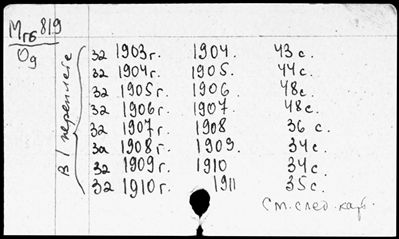 Мгб 819
Од
В/переплете
за 1903г. 1904. 43 с.
за 1904г. 1905. 44с.
за 1905г. 1906 48с.
за 1906г. 1907. 48с.
за 1907г. 1908 36 с.
за 1908г. 1909. 34с.
за 1909г. 1910 34с.
за 1910г. 1911 35с.
См. след. карт.